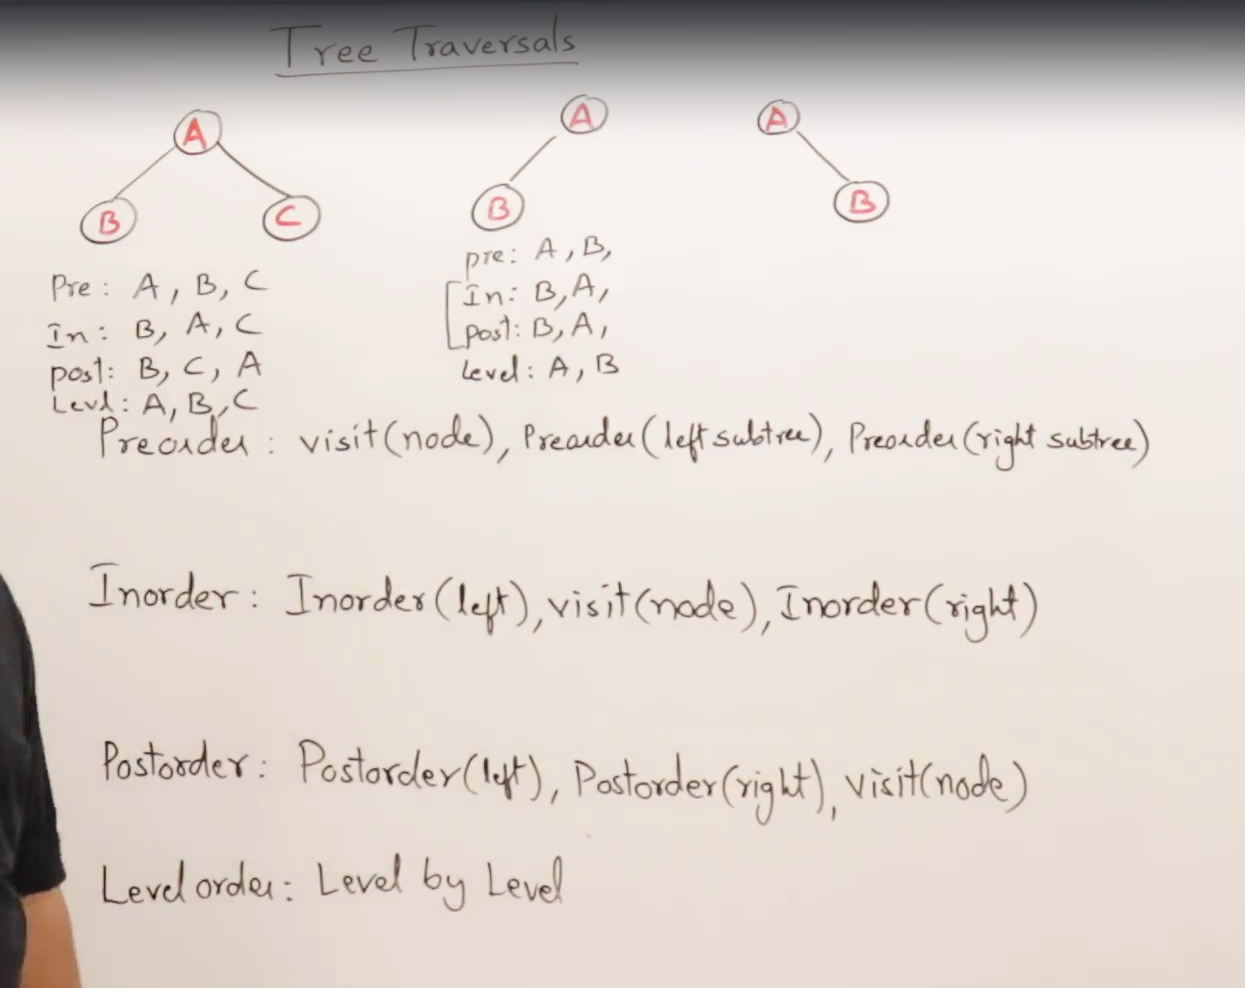 Tree Traversals
A
B
C
Pre: A, B, C
In: B, A, C
post: B, C, A
Level: A, B, C
A
B
pre: A, B,
In: B, A,
post: B, A,
Level: A, B
A
B
Preorder: visit(node), Preorder(left subtree), Preorder(right subtree)
Inorder: Inorder(left), visit(node), Inorder(right)
Postorder: Postorder(left), Postorder(right), visit(node)
Level order: Level by Level